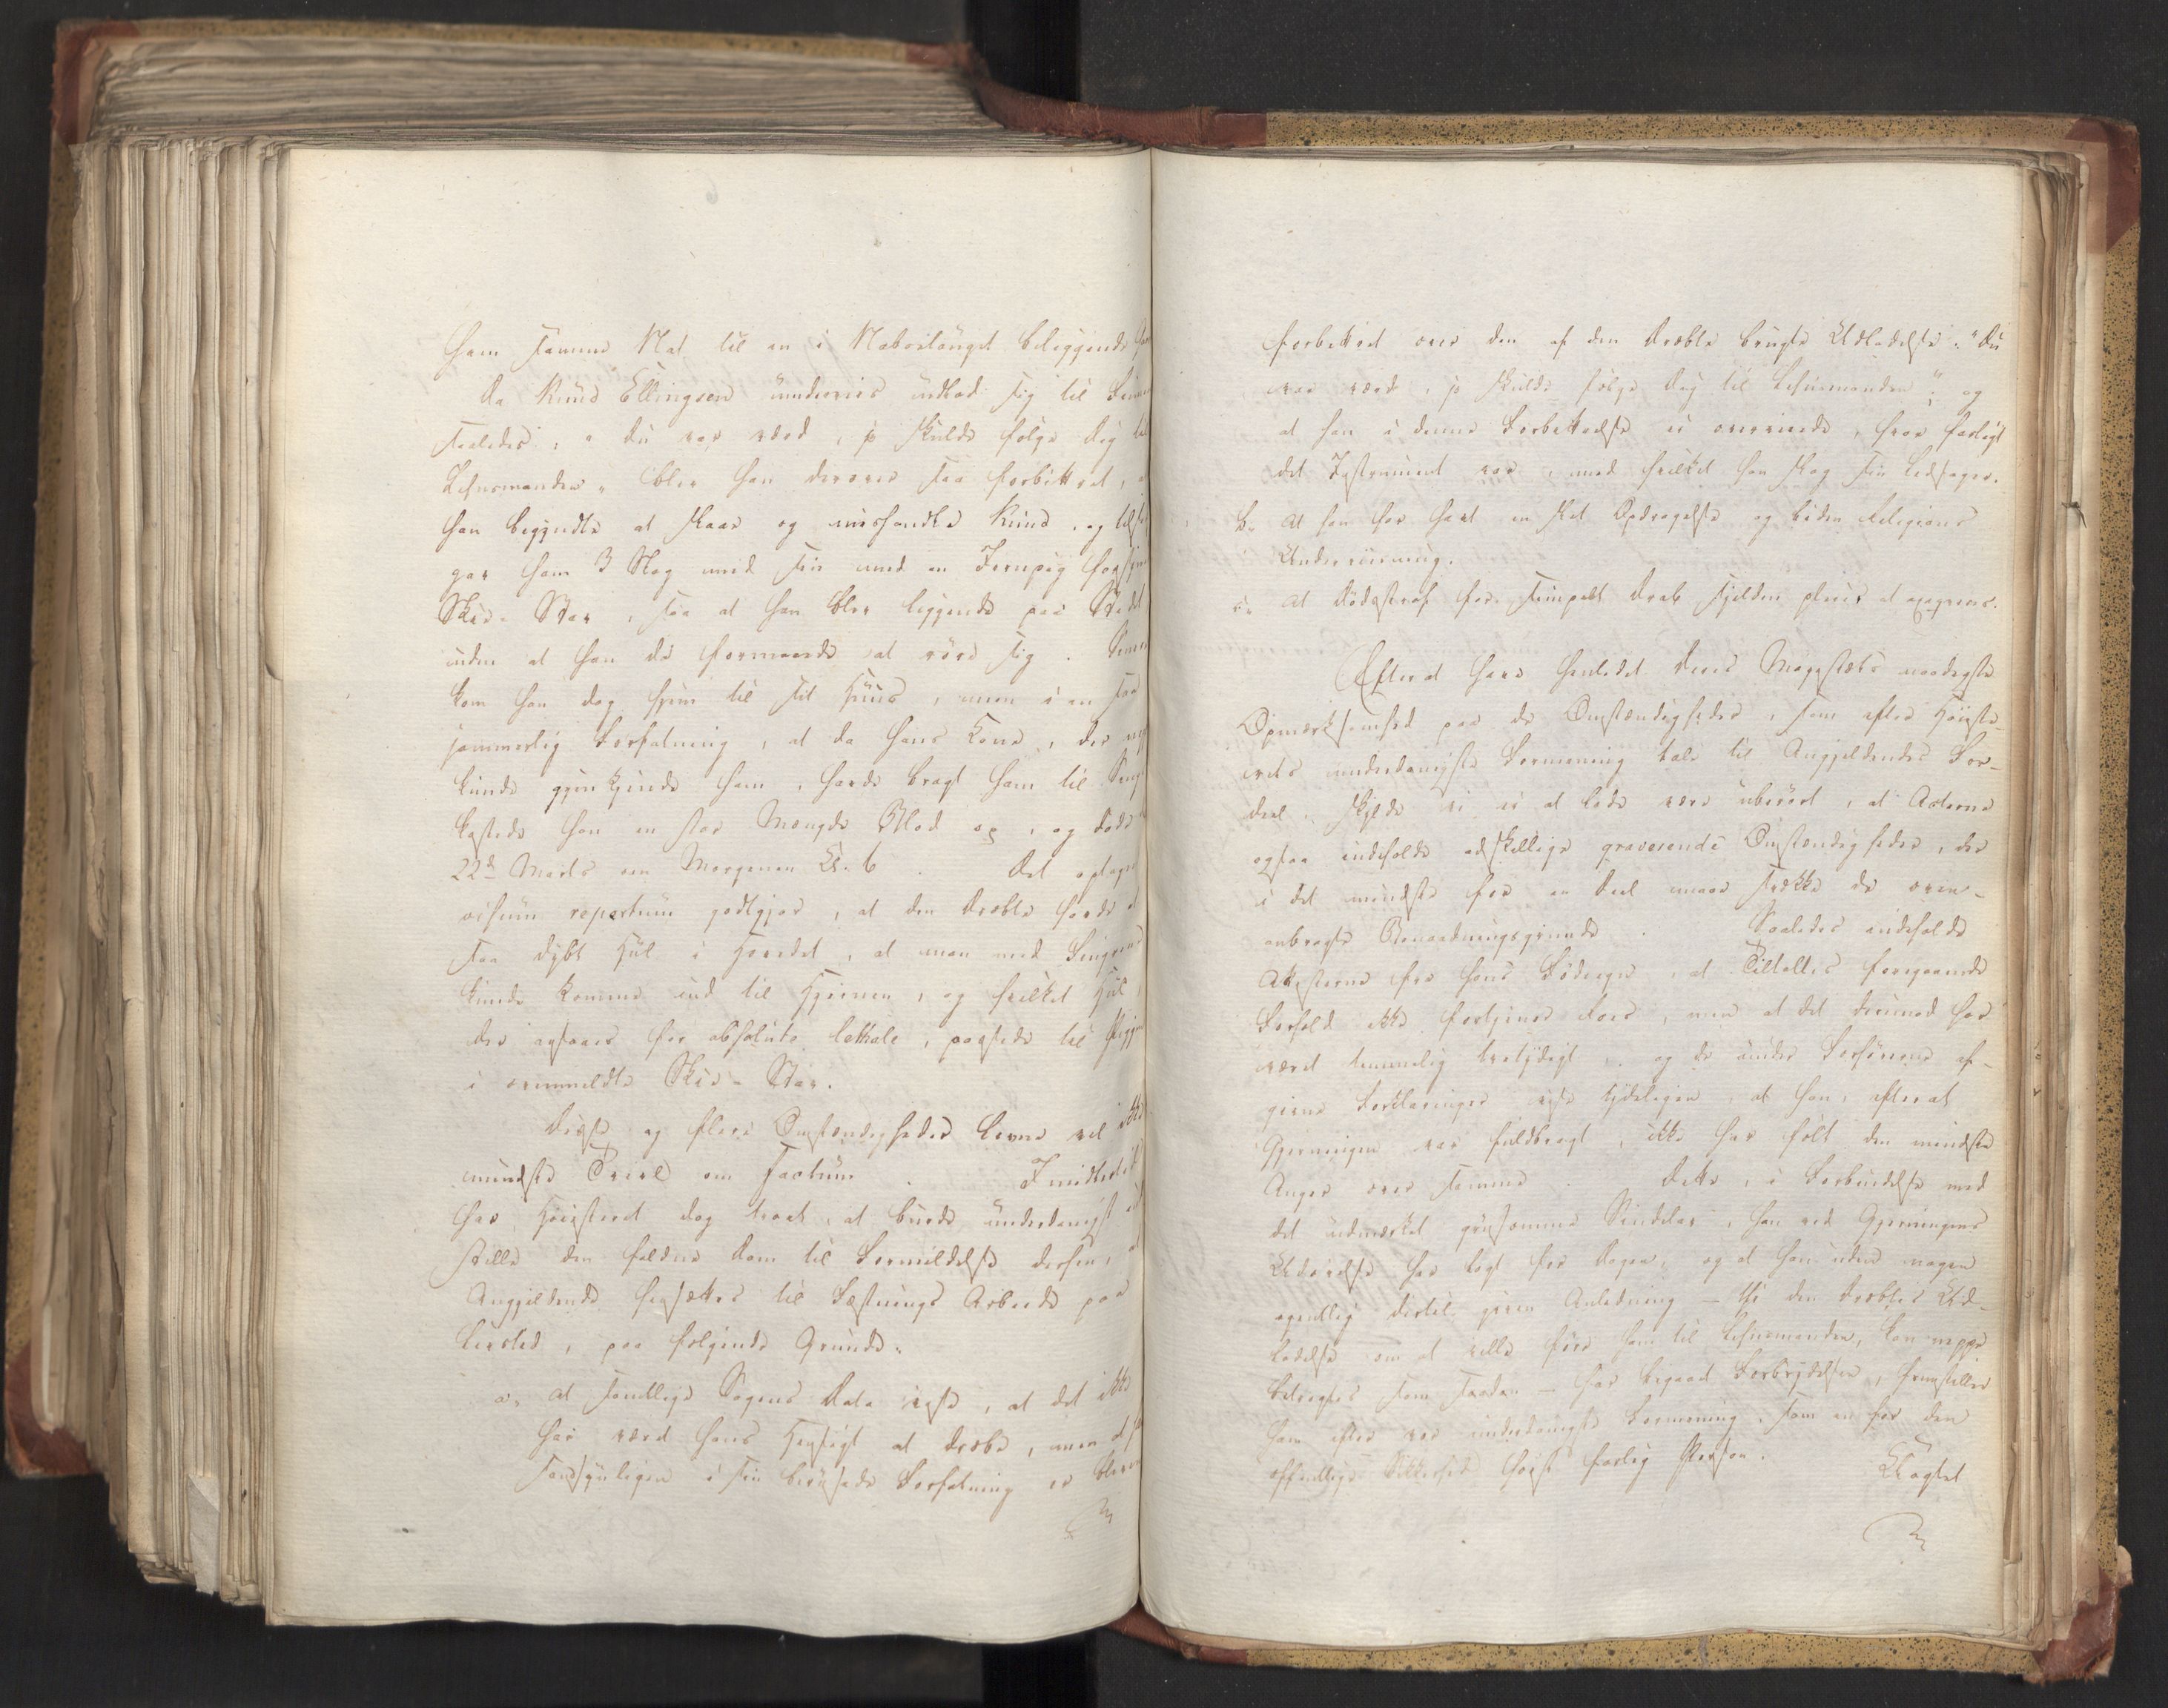 ham samme Nat til en i Naboelauget beliggende
Da Knud Ellingsen underveis udlod sig til
saaledes: "du var værd, jeg skulde følge dig til
Lehnsmanden" blev han derover saa forbittret,
han begyndte at slaae og mishandle Knud, og
gav ham 3 Slag med sin med en Jernpig
Skie-Stav, saa at han blev liggende paa Stedet
uden at han da formaaede at røre sig.
kom han dog hjem til sit Huus, men i en saa
jammerlig Forfatning, at da hans Kone, der
kunde gjenkjende ham, havde bragt ham til
kastede han en stor Mængde Blod op, og døde
22de Marts om Morgenen Kl. 6. Det optagne
visum repertum godtgjør, at den dræbte havde
saa dybt Hul i Hovedet, at man med Fingeren
kunde komme ind til Hjernen, og hvilket Hul,
der ansaaes for absolute lethale, passede til
i ovenmeldte Skie-Stav.
Disse og flere Omstændigheder levne vel ikke
mindste Tvivl om Factum. Imidlertid
har Høiesteret dog troet, at burde underdanigst
stille den faldne Dom til Formildelse derhen,
Angjeldende hensættes til Fæstnings Arbeide paa
Livstid, paa følgende Grunde:
a, at samtlige Sagens Data vise, at det ikke
har været hans Hensigt at dræbe, men at
sandsynligen i sin berusede Forfatning er bleven
forbittret over den af den dræbte brugte Udladelse: "du
var værd, jeg skulde følge dig til Lehnsmanden"; og
at han i denne Forbittrelse ei overveiede, hvor farligt
det Instrument var, med hvilket han slog sin Ledsager.
b, At han har havt en slet Opdragelse og liden Religions
Underviisning.
c, At Dødsstraf for simpelt Drab sjelden pleier at exeqveres.
Efterat have henledet Deres Majestæts naadigste
Opmærksomhed paa de Omstændigheder, som efter Høieste-
rets underdanigste Formening tale til Angjeldendes For-
deel, skylde vi ei at lade være uberørt, at Acterne
ogsaa indeholde adskillige graverende Omstændigheder, der
i det mindste for en Deel maae svække de oven-
anbragte Benaadningsgrunde. Saaledes indeholde
Attesterne fra hans Fødeegn, at Tiltaltes foregaaende
Forhold ikke fortjener Roes, men at det derimod har
været temmelig tvetydigt, og de under Forhørene af-
givne Forklaringer vise tydeligen, at han, efterat
Gjerningen var fuldbragt, ikke har følt den mindste
Anger over samme. Dette, i Forbindelse med
det udmærket grusomme Sindelav, han ved Gjerningens
Udøvelse har lagt for Dagen, og at han uden nogen
egentlig dertil given Anledning – thi den dræbtes Ud-
ladelse om at ville føre ham til Lehnsmanden, kan neppe
betragtes som saadan – har begaaet Forbrydelsen, fremstiller
ham efter vor underdanigste Formening, som en for den
offentlige Sikkerhed høist farlig Person.
Uagtet